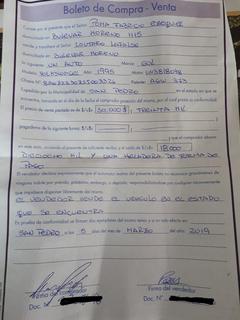 Boleto de Compra - Venta
Conste por el presente que el Señor TOMA FABRICIO
domiciliado en BULEVAR MORENO 1115
vende y transfiere al Señor LAUTARO
domiciliado en BULEVAR MORENO
UN AUTO Marca GOL
VOLKSWAGEN 1995 Motor
chasis Patente
SAN PEDRO en el estado en que se
encuentra, tomando en el día de la fecha el comprador posesión del mismo, por cual presta su conformidad.
El precio de venta pactado es de $/U$S: 30.000$ ( TREINTA MIL
)
pagaderos de la siguiente forma: $/U$S: (
) que el comprador abona
en este acto, sirviendo el presente de suficiente recibo, y el saldo de $/U$S: 18000
DIECIOCHO MIL Y UNA HELADERA DE FORMA DE
PAGO
El vendedor declara expresamente que el automotor materia del presente boleto no reconoce gravámenes de
ninguna índole por prenda, préstamo, embargo, o depósito, responsabilizándose por cualquier inconveniente
que impidiere disponer libremente del mismo.
EL VENDEDOR VENDE EL VEHICULO EN EL ESTADO
QUE SE ENCUENTRA
En prueba de conformidad se firman dos ejemplares del mismo tenor y a un solo efecto en
SAN PEDRO a los 5 días del mes de MARZO del año 2019
Firma del comprador Firma del vendedor
Doc. N° Doc. N°